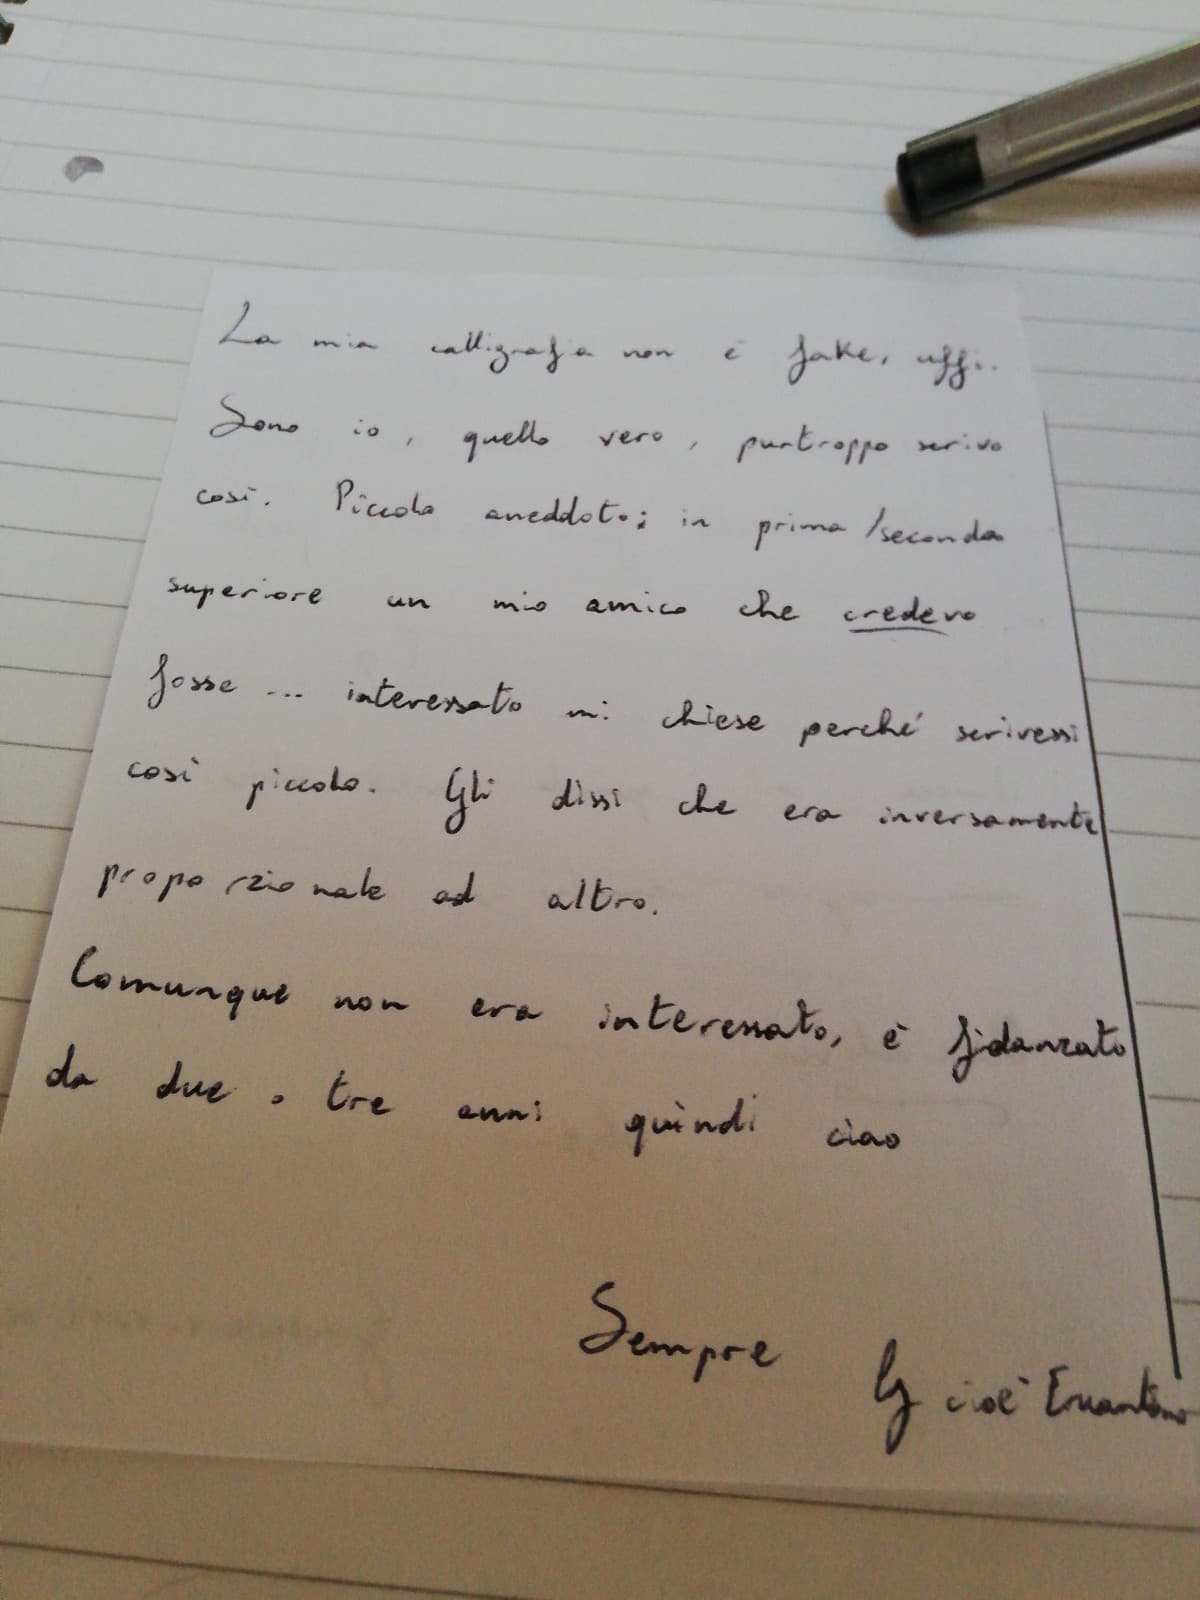 La mia calligrafia non è fake, uffi..
Sono io, quello vero, purtroppo scrivo
così. Piccolo aneddoto; in prima/seconda
superiore un mio amico che credevo
fosse ... interessato mi chiese perché scrivessi
così piccolo. Gli dissi che era inversamente
proporzionale ad altro.
Comunque non era interessato, è fidanzato
da due o tre anni quindi ciao
Sempre G cioè